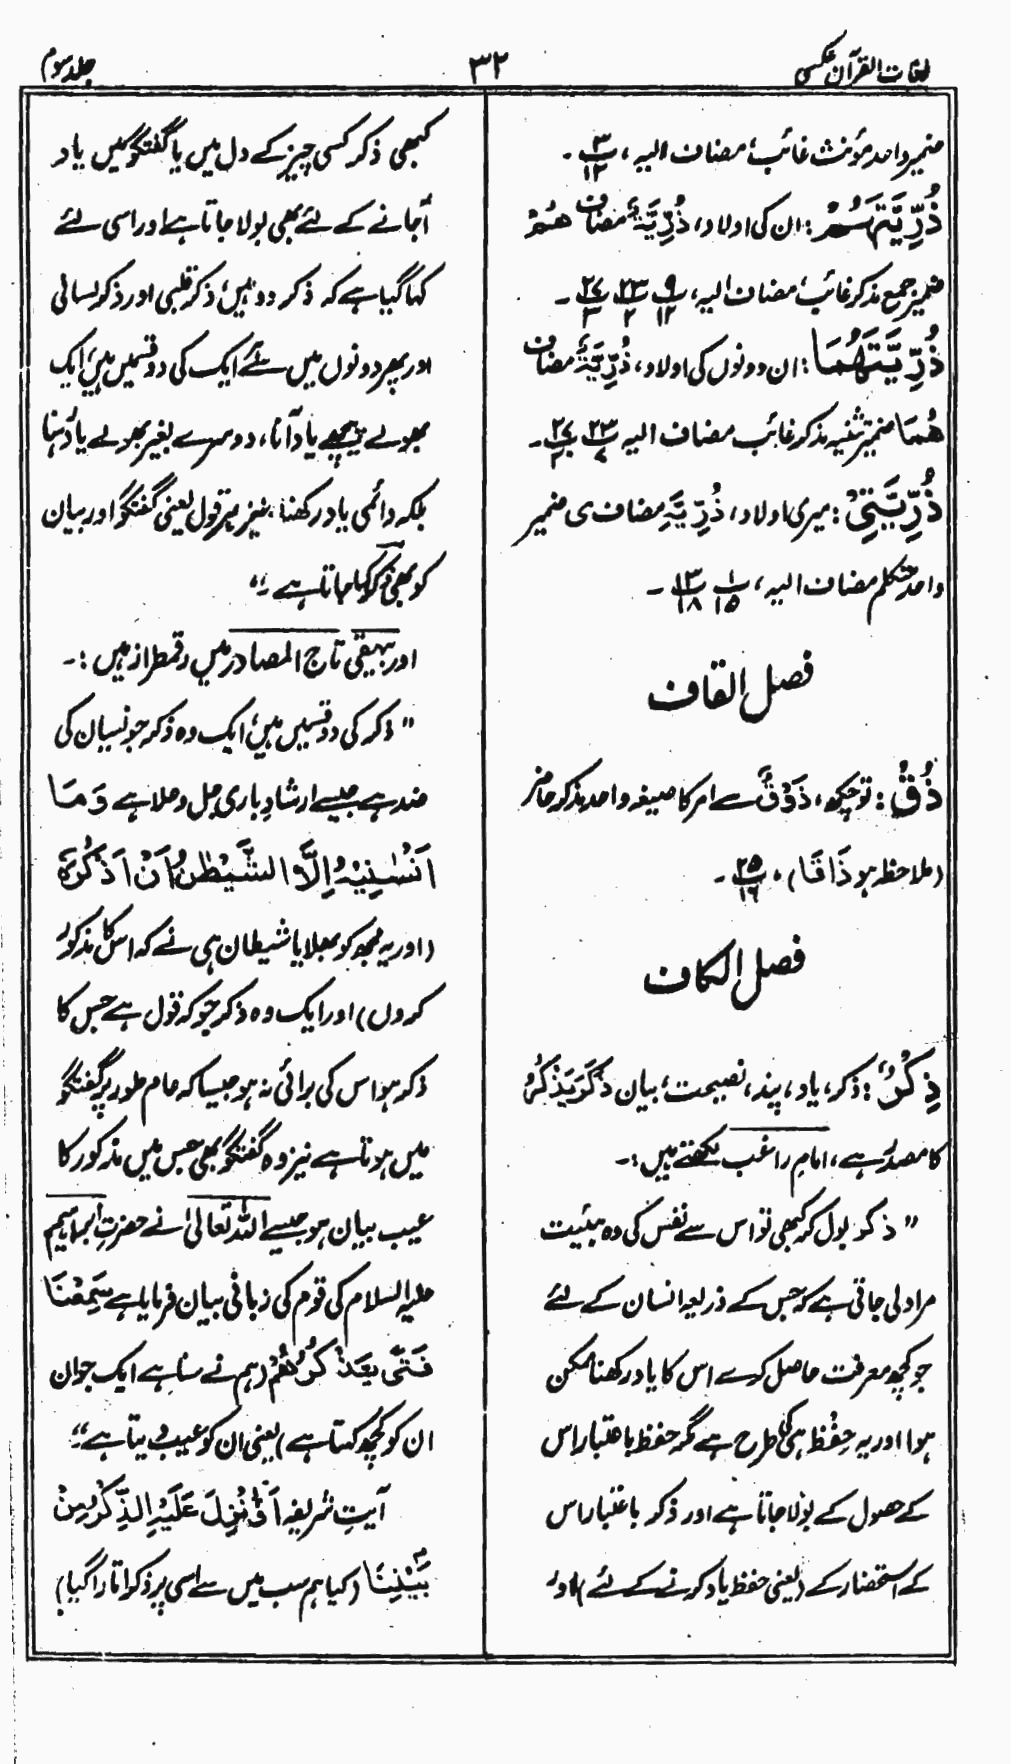 لغات القرآن عکسی
۳۲
جلد سوم
ضمیر واحد مؤنث غائب، مضاف الیہ، ۳/۱۲ ۔
ذُرِّیَّتَہُمْ : ان کی اولاد، ذُرِّیَّۃَ مضاف ھُمْ
ضمیر جمع مذکر غائب، مضاف الیہ، ۹/۱۲ ۲۳/۲ ۲۷/۳ ۔
ذُرِّیَّتِہُمَا : ان دونوں کی اولاد، ذُرِّیَّۃِ مضاف
ھُمَا ضمیر تثنیہ مذکر غائب مضاف الیہ ۲۳/۷ ۲۷/۲۰ ۔
ذُرِّیَّتِیْ : میری اولاد، ذُرِّیَّۃِ مضاف ی ضمیر
واحد متکلم مضاف الیہ، ۱/۱۵ ۱۳/۱۸ ۔
فصل القاف
ذُقْ : تو چکھ، ذَوْقٌ سے امر کا صیغہ واحد مذکر حاضر
(ملاحظہ ہو ذَاقَا)، ۲۵/۱۶ ۔
فصل الکاف
ذِکْرُ : ذکر، یاد، پند، نصیحت، بیان ذَکَرَ یَذْکُرُ
کا مصدر ہے، امام راغب لکھتے ہیں :۔
" ذکر بول کر کبھی تو اس سے نفس کی وہ ہیئت
مراد لی جاتی ہے کہ جس کے ذریعہ انسان کے لئے
جو کچھ معرفت حاصل کرے اس کا یاد رکھنا ممکن
ہو اور یہ حِفْظ ہی کی طرح ہے مگر حفظ باعتبار اس
کے حصول کے بولا جاتا ہے اور ذکر باعتبار اس
کے استحضار کے (یعنی حفظ یاد کرنے کے لئے) اور
کبھی ذکر کسی چیز کے دل میں یا گفتگو میں یاد
آجانے کے لئے بھی بولا جاتا ہے اور اسی لئے
کہا گیا ہے کہ ذکر دو ہیں، ذکر قلبی اور ذکر لسانی
اور پھر دونوں میں سے ہر ایک کی دو قسمیں ہیں، ایک
بھولے پیچھے یاد آنا، دوسرے بغیر بھولے یاد رہنا
بلکہ دائمی یاد رکھنا، نیز ہر قول یعنی گفتگو اور بیان
کو بھی ذکر کہا جاتا ہے ۔"
اور بیہقی تاج المصادر میں رقمطراز ہیں :۔
" ذکر کی دو قسمیں ہیں، ایک وہ ذکر جو نسیان کی
ضد ہے جیسے ارشاد باری جل وعلا ہے وَمَا
اَنْسٰنِیْہُ اِلَّا الشَّیْطٰنُ اَنْ اَذْکُرَہٗ
(اور یہ مجھ کو بھلایا شیطان ہی نے کہ اس کا مذکور
کروں) اور ایک وہ ذکر جو کہ قول ہے جس کا
ذکر ہو اس کی برائی نہ ہو جیسا کہ عام طور پر گفتگو
میں ہوتا ہے نیز وہ گفتگو بھی جس میں مذکور کا
عیب بیان ہو جیسے اللہ تعالیٰ نے حضرت ابراہیم
علیہ السلام کی قوم کی زبانی بیان فرمایا ہے سَمِعْنَا
فَتًی یَّذْکُرُھُمْ (ہم نے سنا ہے ایک جوان
ان کو کچھ کہتا ہے) یعنی ان کو عیب دیتا ہے ۔"
آیت شریفہ اَؤُنْزِلَ عَلَیْہِ الذِّکْرُ مِنْ
بَیْنِنَا (کیا ہم سب میں سے اسی پر ذکر اتارا گیا)